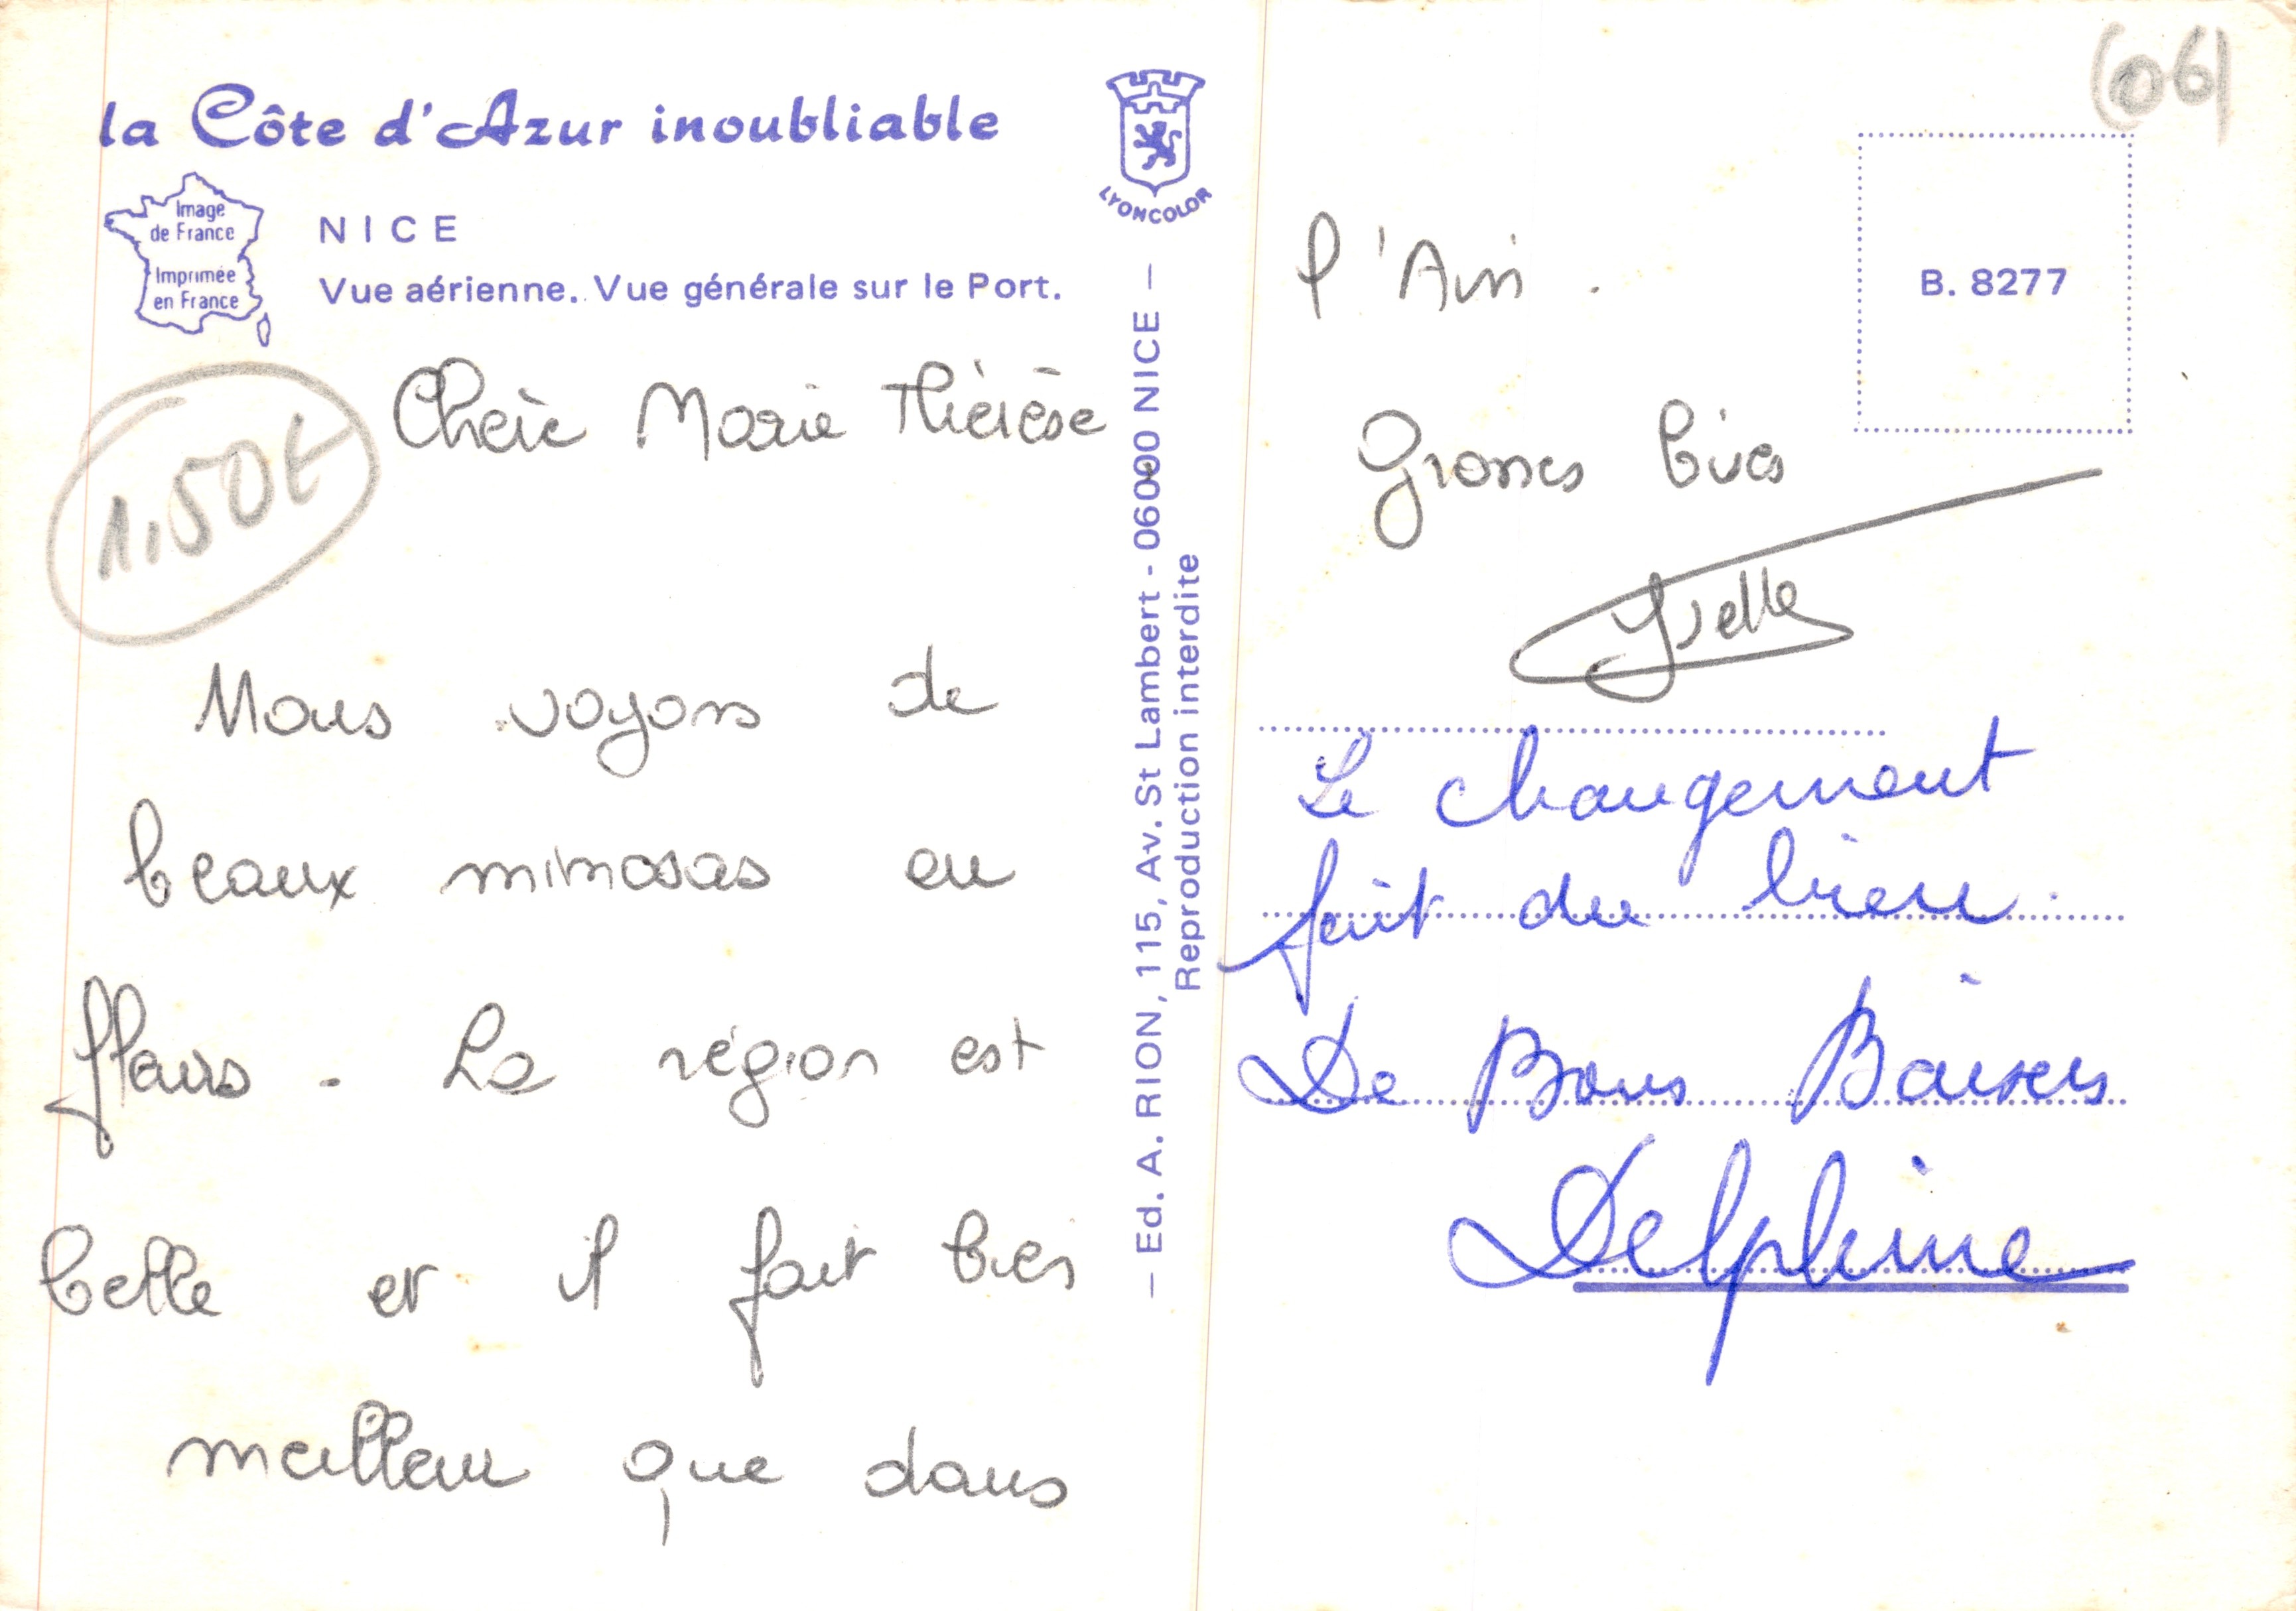 la Côte d'Azur inoubliable
Image
de France
Imprimée
en France
NICE
Vue aérienne. Vue générale sur le Port.
LYONCOLOR
1,50€
Chère Marie Thérèse
Nous voyons de
beaux mimosas en
fleurs - La région est
belle et il fait bien
meilleur que dans
— Ed. A. RION, 115, Av. St Lambert - 06000 NICE —
Reproduction interdite
(06)
B. 8277
l'Ain.
Grosses bises
Yvette
Le changement
fait du bien.
De Bons Baisers
Delphine